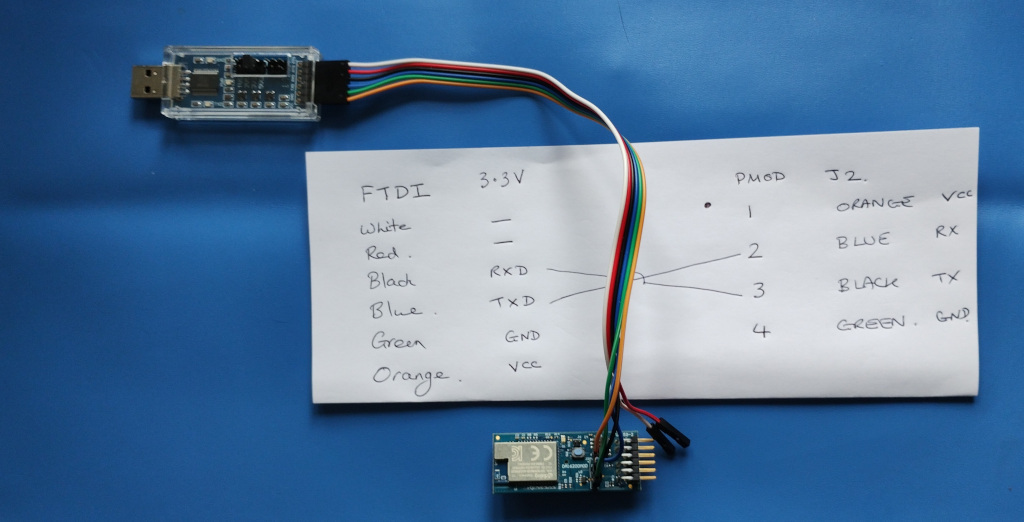 FTDI 3.3V
White —
Red. —
Black RXD
Blue. TXD
Green GND
Orange. VCC
PMOD J2.
1 ORANGE VCC
2 BLUE RX
3 BLACK TX
4 GREEN. GND
CE